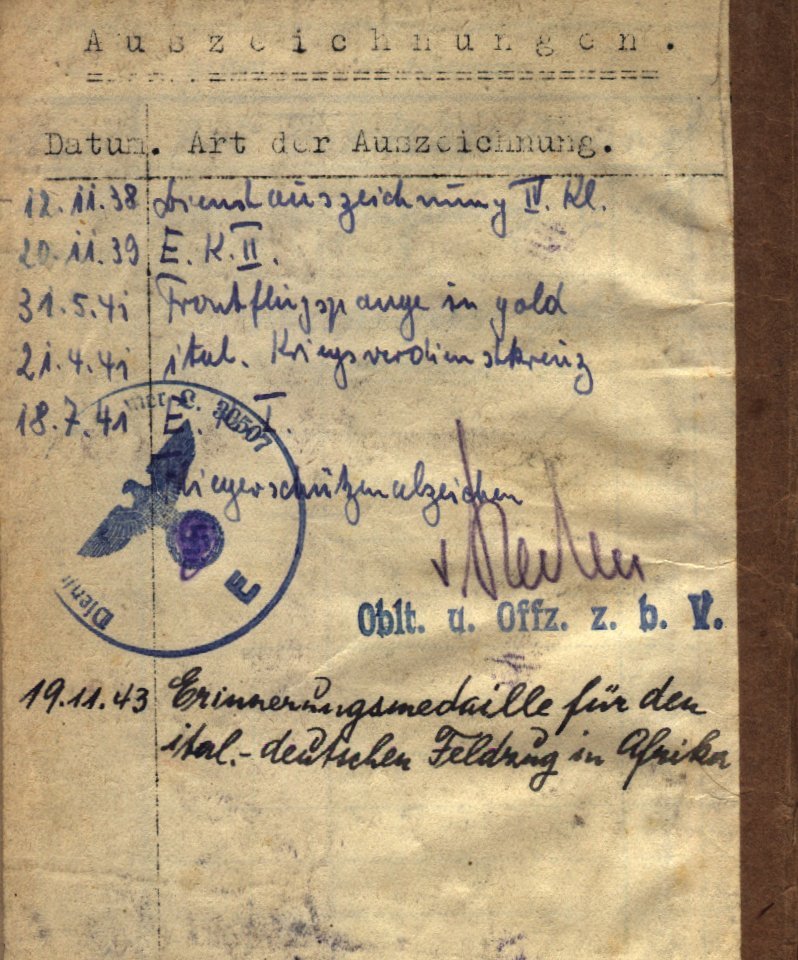 Auszeichnungen.
Datum. Art der Auszeichnung.
12.11.38 Dienstauszeichnung IV. Kl.
20.11.39 E.K.II.
31.5.41 Frontflugspange in gold
21.4.41 ital. Kriegsverdienstkreuz
18.7.41 E. I.
Fliegerschützenabzeichen
L 30507
Dienst
E
Oblt. u. Offz. z. b. V.
19.11.43 Erinnerungsmedaille für den
ital.-deutschen Feldzug in Afrika